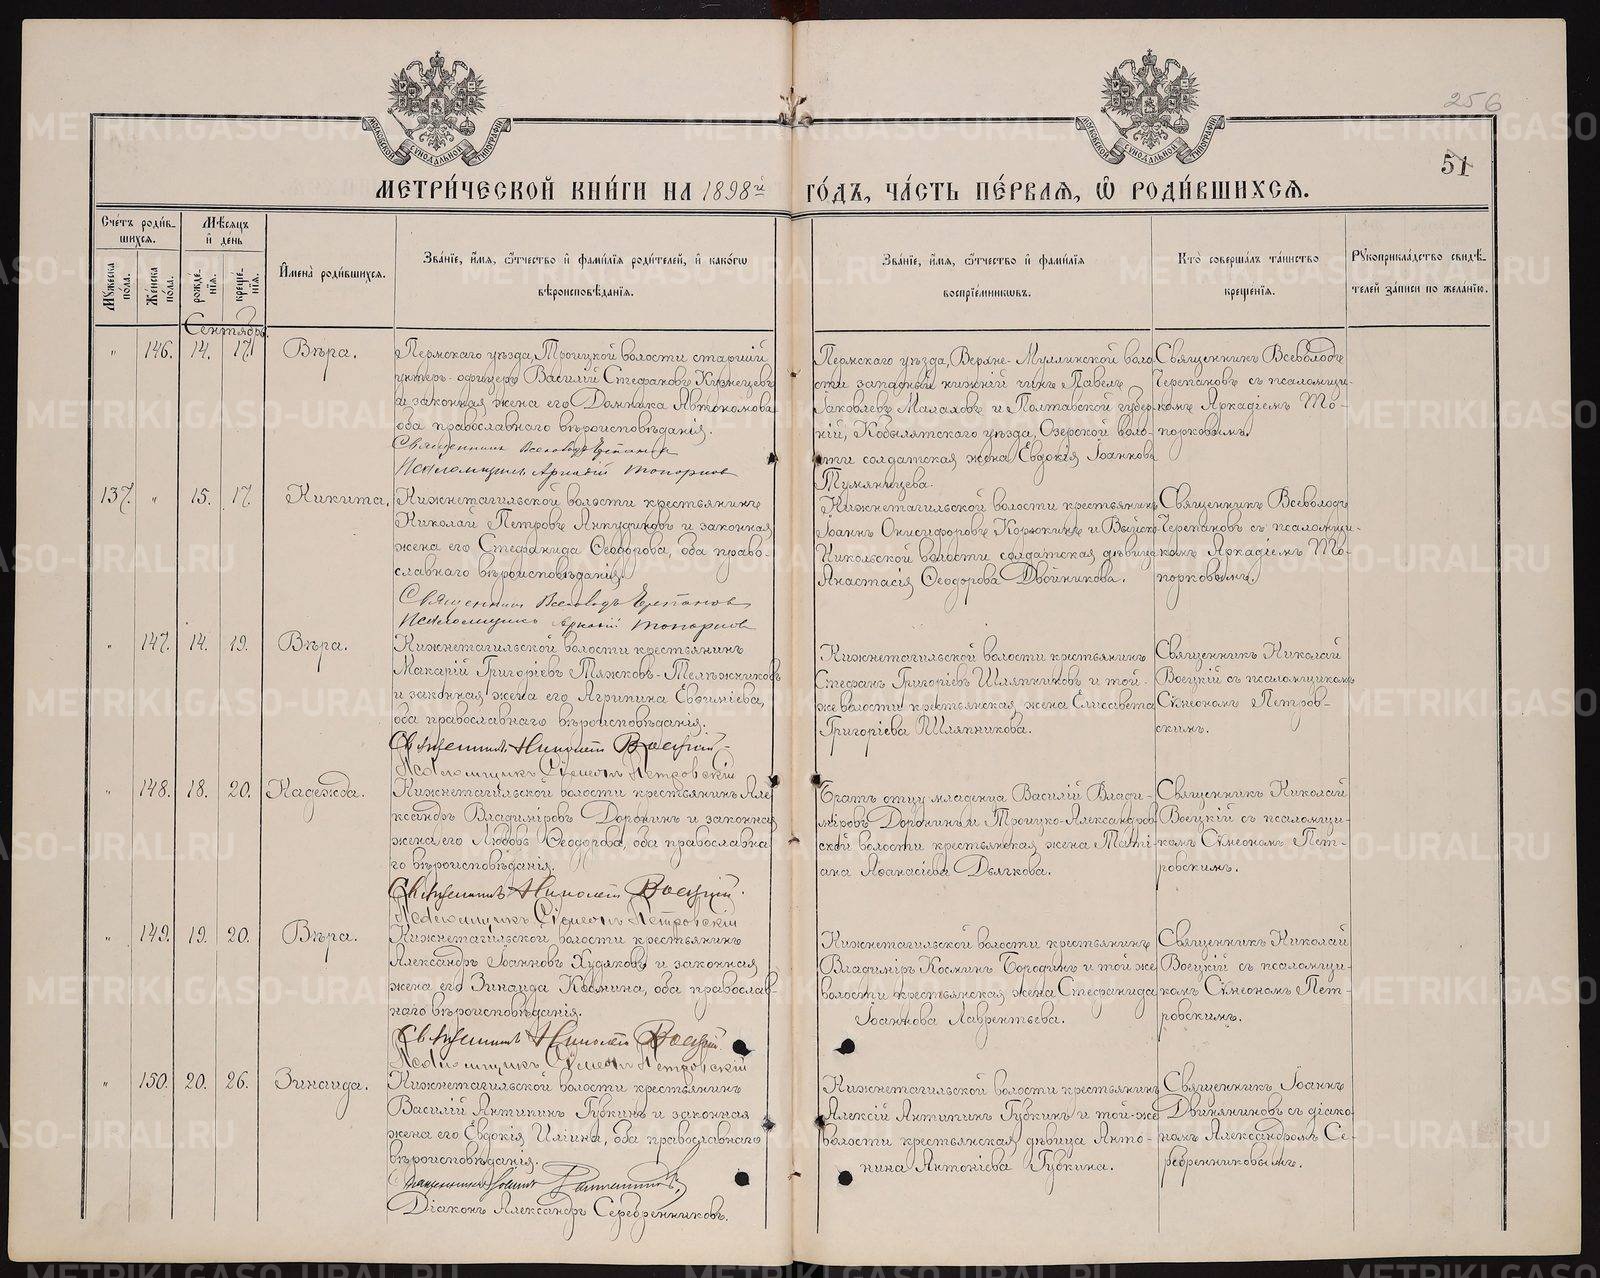 256
51
МОСКОВСКОЙ СѴНОДАЛЬНОЙ ТИПОГРАФІИ
МОСКОВСКОЙ СѴНОДАЛЬНОЙ ТИПОГРАФІИ
МЕТРИ́ЧЕСКОЙ КНИ́ГИ НА 1898й ГО́ДЪ, ЧА́СТЬ ПЕ́РВАѦ, Ѡ РОДИ́ВШИХСѦ.
Сче́тъ роди́в-
шихсѧ.
Мꙋжеска по́ла.
Же́нска по́ла.
Мѣ́сѧцъ
и҆ де́нь
рожде́-
нїѧ.
креще́-
нїѧ.
И҆мена̀ роди́вшихсѧ.
Зва́нїе, и҆́мѧ, ѻ҆́тчество и҆ фами́лїѧ роди́телей, и҆ како́гѡ
вѣроисповѣ́данїѧ.
Зва́нїе, и҆́мѧ, ѻ҆́тчество и҆ фами́лїѧ
воспрїе́мникѡвъ.
Кто̀ соверша́лъ та́инство
креще́нїѧ.
Рꙋкоприкла́дство свидѣ́-
телей за́писи по жела́нїю.
Сентябрь.
" 146. 14. 17. Вѣра.
Пермскаго уѣзда, Троицкой волости старшій
унтеръ-офицеръ Василій Стефановъ Кузнецовъ
и законная жена его Домника Автономова
оба православнаго вѣроисповѣданія.
Священникъ Всеволодъ Черепановъ
Псаломщикъ Аркадій Топорков
Пермскаго уѣзда, Верхне-Муллинской воло-
сти запасный нижній чинъ Павелъ
Іаковлевъ Малахов и Полтавской губер-
ніи, Кобылятскаго уѣзда, Озерской воло-
сти солдатская жена Евдокія Іоаннова
Тумянцева.
Священникъ Всеволодъ
Черепановъ съ псаломщи-
комъ Аркадіемъ То-
порковымъ.
137. " 15. 17. Никита.
Нижнетагильской волости крестьянинъ
Николай Петровъ Анкудиновъ и законная
жена его Стефанида Ѳеодорова, оба право-
славнаго вѣроисповѣданія.
Священникъ Всеволодъ Черепановъ
Псаломщикъ Аркадій Топорков
Нижнетагильской волости крестьянинъ
Іоаннъ Онисифоровъ Коржкинъ и Выйско-
Никольской волости солдатская дѣвица
Анастасія Ѳеодорова Двойникова.
Священникъ Всеволодъ
Черепановъ съ псаломщи-
комъ Аркадіемъ То-
порковымъ.
" 147. 14. 19. Вѣра.
Нижнетагильской волости крестьянинъ
Макарій Григоріевъ Тяжков-Телѣжниковъ
и законная жена его Агрипина Евѳиміева,
оба православнаго вѣроисповѣданія.
Священникъ Николай Воецкій
Псаломщикъ Сѵмеонъ Петровскій
Нижнетагильской волости крестьянинъ
Стефанъ Григоріевъ Шляпниковъ и той-
же волости крестьянская жена Елисавета
Григоріева Шляпникова.
Священникъ Николай
Воецкій съ псаломщикомъ
Сѵмеономъ Петров-
скимъ.
" 148. 18. 20. Надежда.
Нижнетагильской волости крестьянинъ Але
ксандръ Владиміровъ Доронинъ и законная
жена его Любовь Ѳеодорова, оба православна
го вѣроисповѣданія.
Священникъ Николай Воецкій.
Псаломщикъ Сѵмеонъ Петровскій
Братъ отцу младенца Василій Влади-
міровъ Доронинъ и Троицко-Александров
ской волости крестьянская жена Таті-
ана Аѳанасіева Дьячкова.
Священникъ Николай
Воецкій съ псаломщи-
комъ Сѵмеономъ Пет-
ровскимъ.
" 149. 19. 20. Вѣра.
Нижнетагильской волости крестьянинъ
Александръ Іоанновъ Худяковъ и законная
жена его Зинаида Космина, оба православ-
наго вѣроисповѣданія.
Священникъ Николай Воецкій
Псаломщикъ Сѵмеонъ Петровскій
Нижнетагильской волости крестьянинъ
Владиміръ Косминъ Бородинъ и той же
волости крестьянская жена Стефанида
Іоаннова Лаврентьева.
Священникъ Николай
Воецкій съ псаломщи-
комъ Сѵмеономъ Пет-
ровскимъ.
" 150. 20. 26. Зинаида.
Нижнетагильской волости крестьянинъ
Василій Антипинъ Губкинъ и законная
жена его Евдокія Иліина, оба православнаго
вѣроисповѣданія.
Священникъ Іоаннъ
Діаконъ Александръ Серебренниковъ.
Нижнетагильской волости крестьянинъ
Алексій Антипинъ Губкинъ и той-же
волости крестьянская дѣвица Анто-
нина Антоніева Губкина.
Священникъ Іоаннъ
Двиняниновъ съ діако
номъ Александромъ Се-
ребренниковымъ.
METRIKI.GASO-URAL.RU